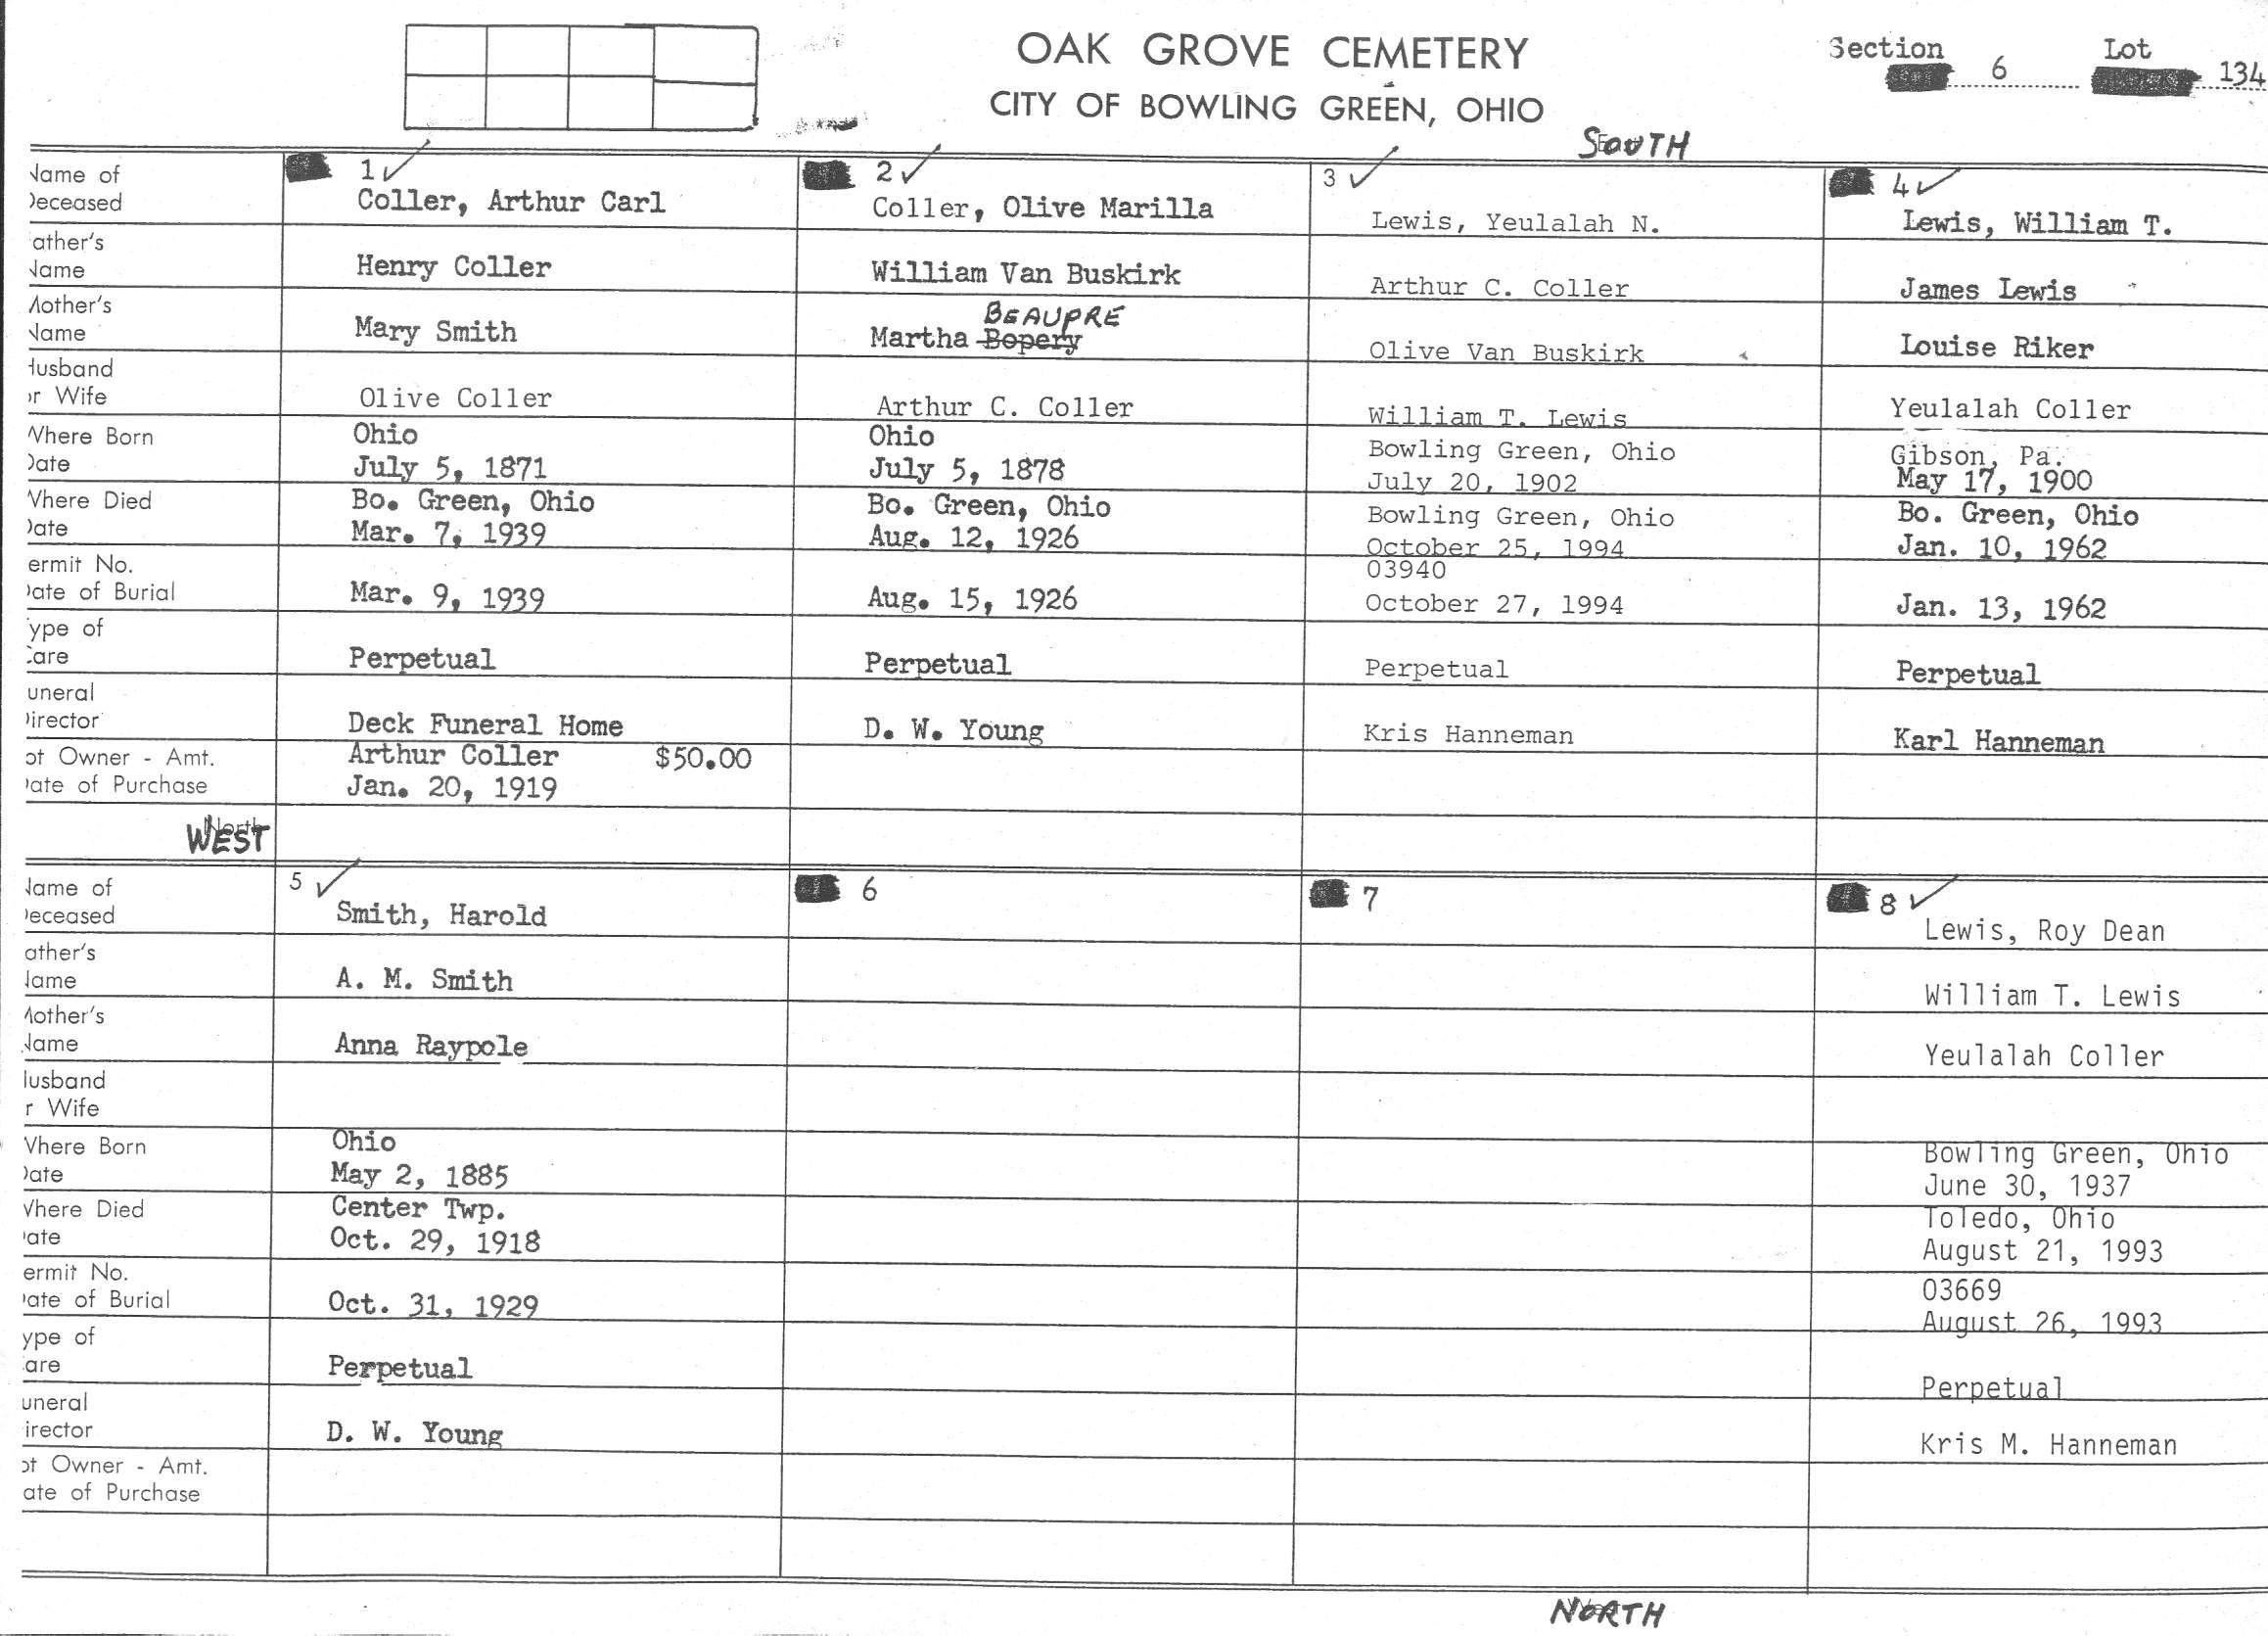 OAK GROVE CEMETERY
CITY OF BOWLING GREEN, OHIO
Section 6 Lot 134
SOUTH
Name of
Deceased
1 ✓ Coller, Arthur Carl
2 ✓ Coller, Olive Marilla
3 ✓ Lewis, Yeulalah N.
4 ✓ Lewis, William T.
ather's
Name
Henry Coller
William Van Buskirk
Arthur C. Coller
James Lewis
Mother's
Name
Mary Smith
BEAUPRE
Martha Bopery
Olive Van Buskirk
Louise Riker
Husband
or Wife
Olive Coller
Arthur C. Coller
William T. Lewis
Yeulalah Coller
Where Born
Date
Ohio
July 5, 1871
Ohio
July 5, 1878
Bowling Green, Ohio
July 20, 1902
Gibson, Pa.
May 17, 1900
Where Died
Date
Bo. Green, Ohio
Mar. 7, 1939
Bo. Green, Ohio
Aug. 12, 1926
Bowling Green, Ohio
October 25, 1994
Bo. Green, Ohio
Jan. 10, 1962
ermit No.
Date of Burial
Mar. 9, 1939
Aug. 15, 1926
03940
October 27, 1994
Jan. 13, 1962
ype of
Care
Perpetual
Perpetual
Perpetual
Perpetual
uneral
Director
Deck Funeral Home
D. W. Young
Kris Hanneman
Karl Hanneman
ot Owner - Amt.
Date of Purchase
Arthur Coller $50.00
Jan. 20, 1919
WEST
Name of
Deceased
5 ✓ Smith, Harold
6
7
8 ✓ Lewis, Roy Dean
ather's
Name
A. M. Smith
William T. Lewis
Mother's
Name
Anna Raypole
Yeulalah Coller
Husband
r Wife
Where Born
Date
Ohio
May 2, 1885
Bowling Green, Ohio
June 30, 1937
Where Died
Date
Center Twp.
Oct. 29, 1918
Toledo, Ohio
August 21, 1993
ermit No.
Date of Burial
Oct. 31, 1929
03669
August 26, 1993
ype of
are
Perpetual
Perpetual
uneral
irector
D. W. Young
Kris M. Hanneman
ot Owner - Amt.
ate of Purchase
NORTH